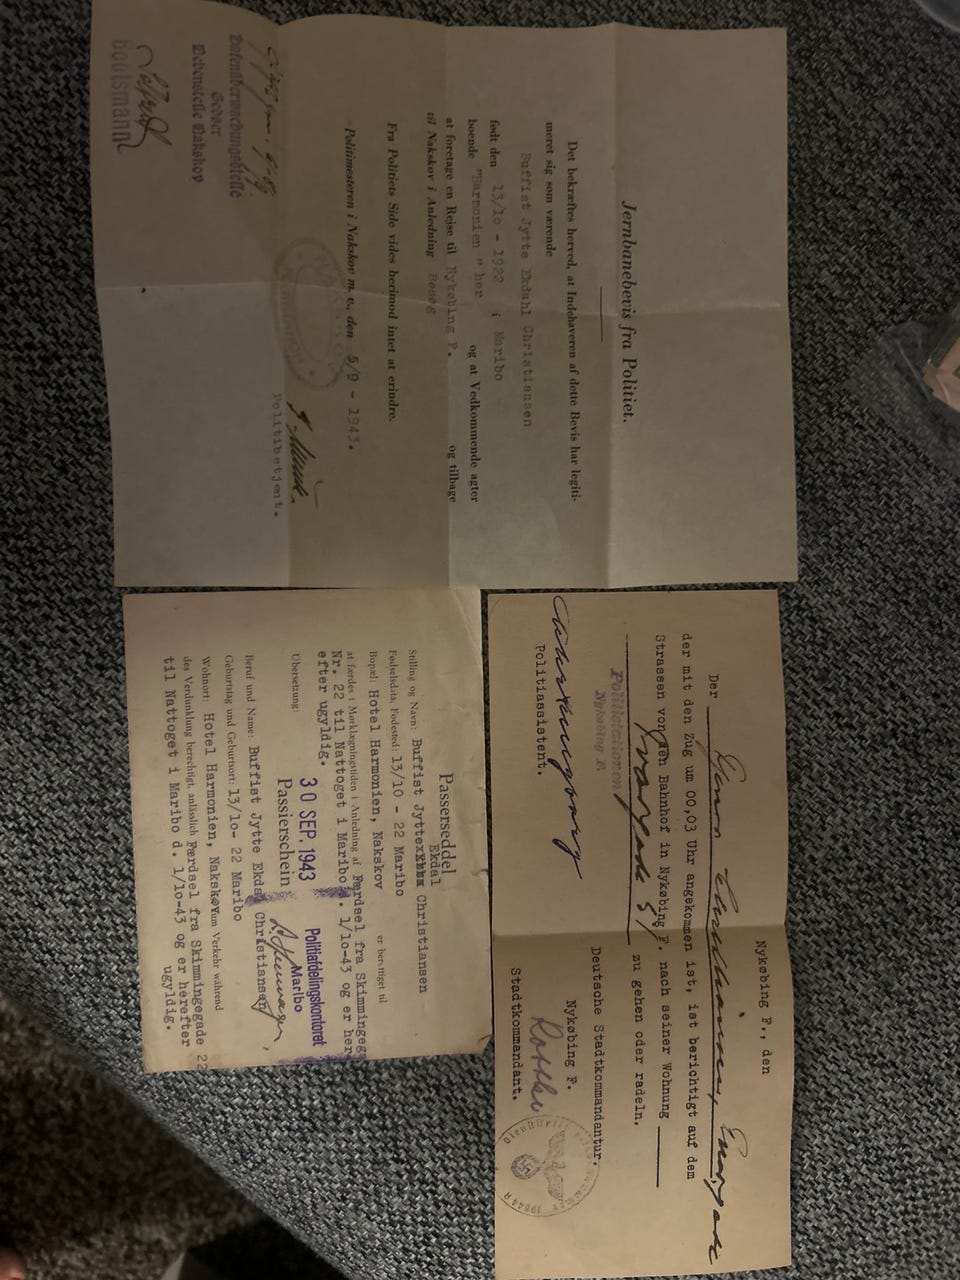 Jernbanebevis fra Politiet.
Det bekræftes herved, at Indehaveren af dette Bevis har legiti-
meret sig som værende
Buffist Jytte Ekdahl Christiansen
født den 13/10 - 1922 i Maribo
boende "Harmonien" her og at Vedkommende agter
at foretage en Rejse til Nykøbing F. og tilbage
til Nakskov i Anledning Besøg
Fra Politiets Side vides herimod intet at erindre.
Politimesteren i Nakskov m. v., den 5/9 - 1943.
Politibetjent.
Hafenüberwachungsstelle
Gedser
Nebenstelle Nakskov
Bootsmann
Nykøbing F., den
Der
der mit den Zug um 00,03 Uhr angekommen ist, ist berichtigt auf dem
Strassen von den Bahnhof in Nykøbing F. nach seiner Wohnung
zu gehen oder radeln.
Politistationen
Nykøbing F.
Deutsche Stadtkommandantur.
Nykøbing F.
Politiassistent.
Stadtkommandant.
Passerseddel
Ekdal
Stilling og Navn: Buffist Jytte Christiansen
Fødselsdata, Fødested: 13/10 - 22 Maribo
Bopæl: Hotel Harmonien, Nakskov er berettiget til
at færdes i Mørklægningstiden i Anledning af Færdsel fra Skimmingeg
Nr. 22 til Nattoget i Maribo d. 1/10-43 og er her
efter ugyldig.
30 SEP. 1943
Politiafdelingskontoret
Maribo
Übersetzung: Passierschein
Beruf und Name: Buffist Jytte Ekdal Christiansen,
Geburtstag und Geburtsort: 13/10- 22 Maribo
Wohnort: Hotel Harmonien, Nakskov um Verkehr während
des Verdunklung berechtigt, anlässlich Færdsel fra Skimmingegade 22
til Nattoget i Maribo d. 1/10-43 og er herefter
ugyldig.